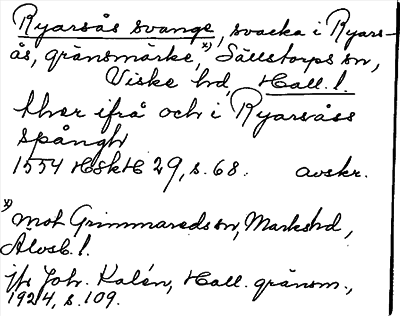 Ryarsås svange, svacka i Ryars-
ås, gränsmärke,ˣ⁾ Sällstorps sn,
Viske hd, Hall. l.
ther ifrå och i Ryarsåss
spångh
1554 HSkH 29, s. 68. avskr.
ˣ⁾ mot Grimmareds sn, Marks hd,
Älvsb. l.
jfr Joh. Kalén, Hall. gränsm.,
1924, s. 109.